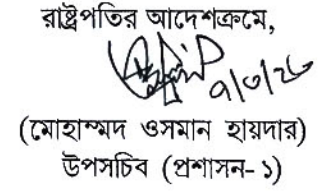 রাষ্ট্রপতির আদেশক্রমে,
(মোহাম্মদ ওসমান হায়দার)
উপসচিব (প্রশাসন- ১)